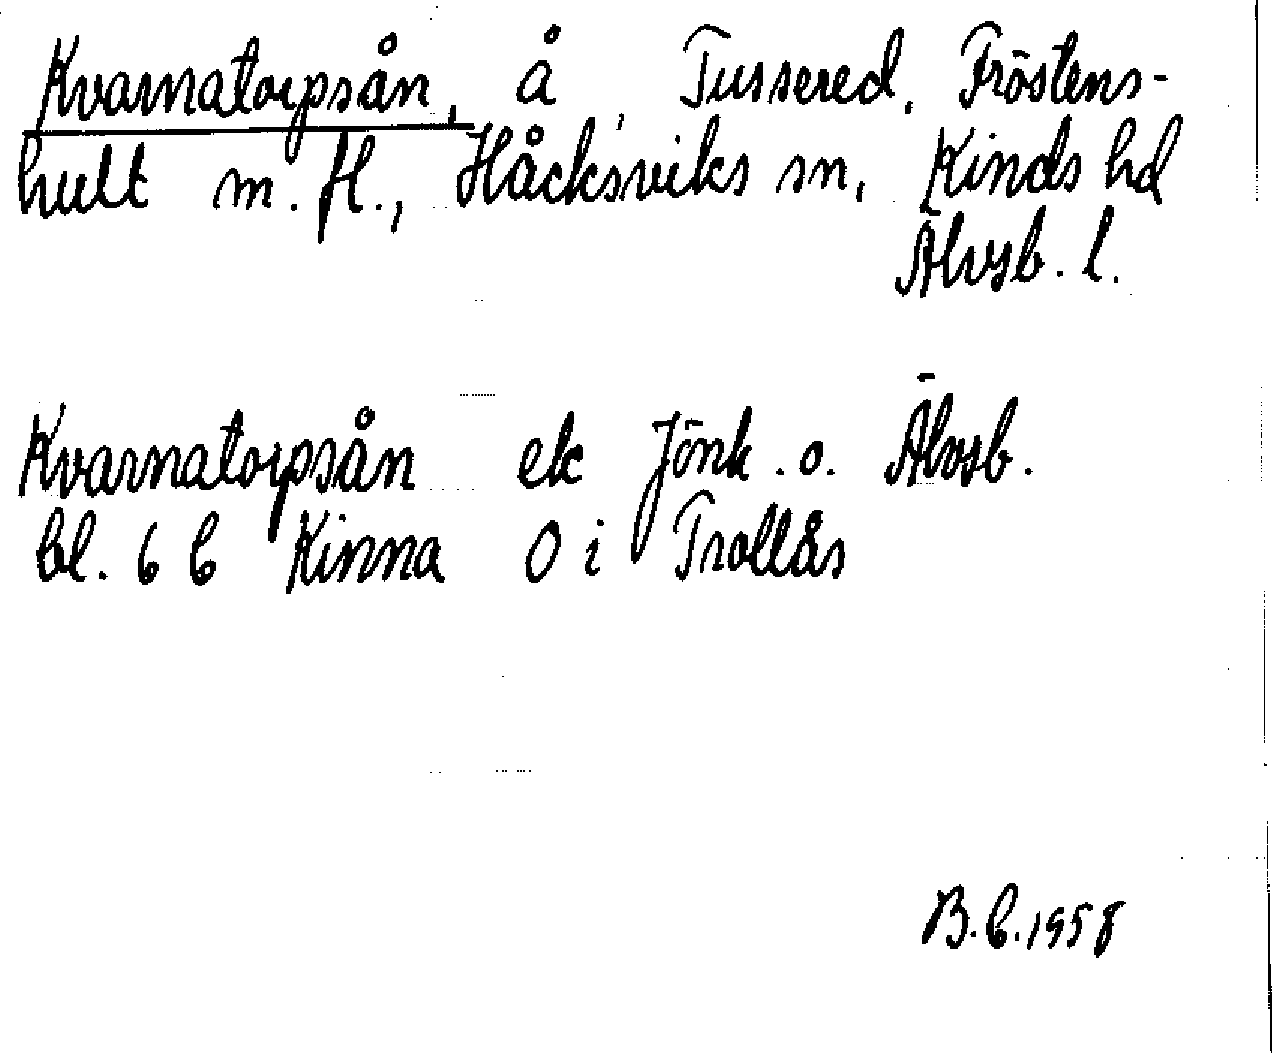 Kvarnatorpsån, å, Tussered, Fröstens-
hult m. fl., Håcksviks sn, Kinds hd
Älvsb. l.
Kvarnatorpsån ek Jönk. o. Älvsb.
bl. 6 b Kinna O i Trollås
B.b. 1958